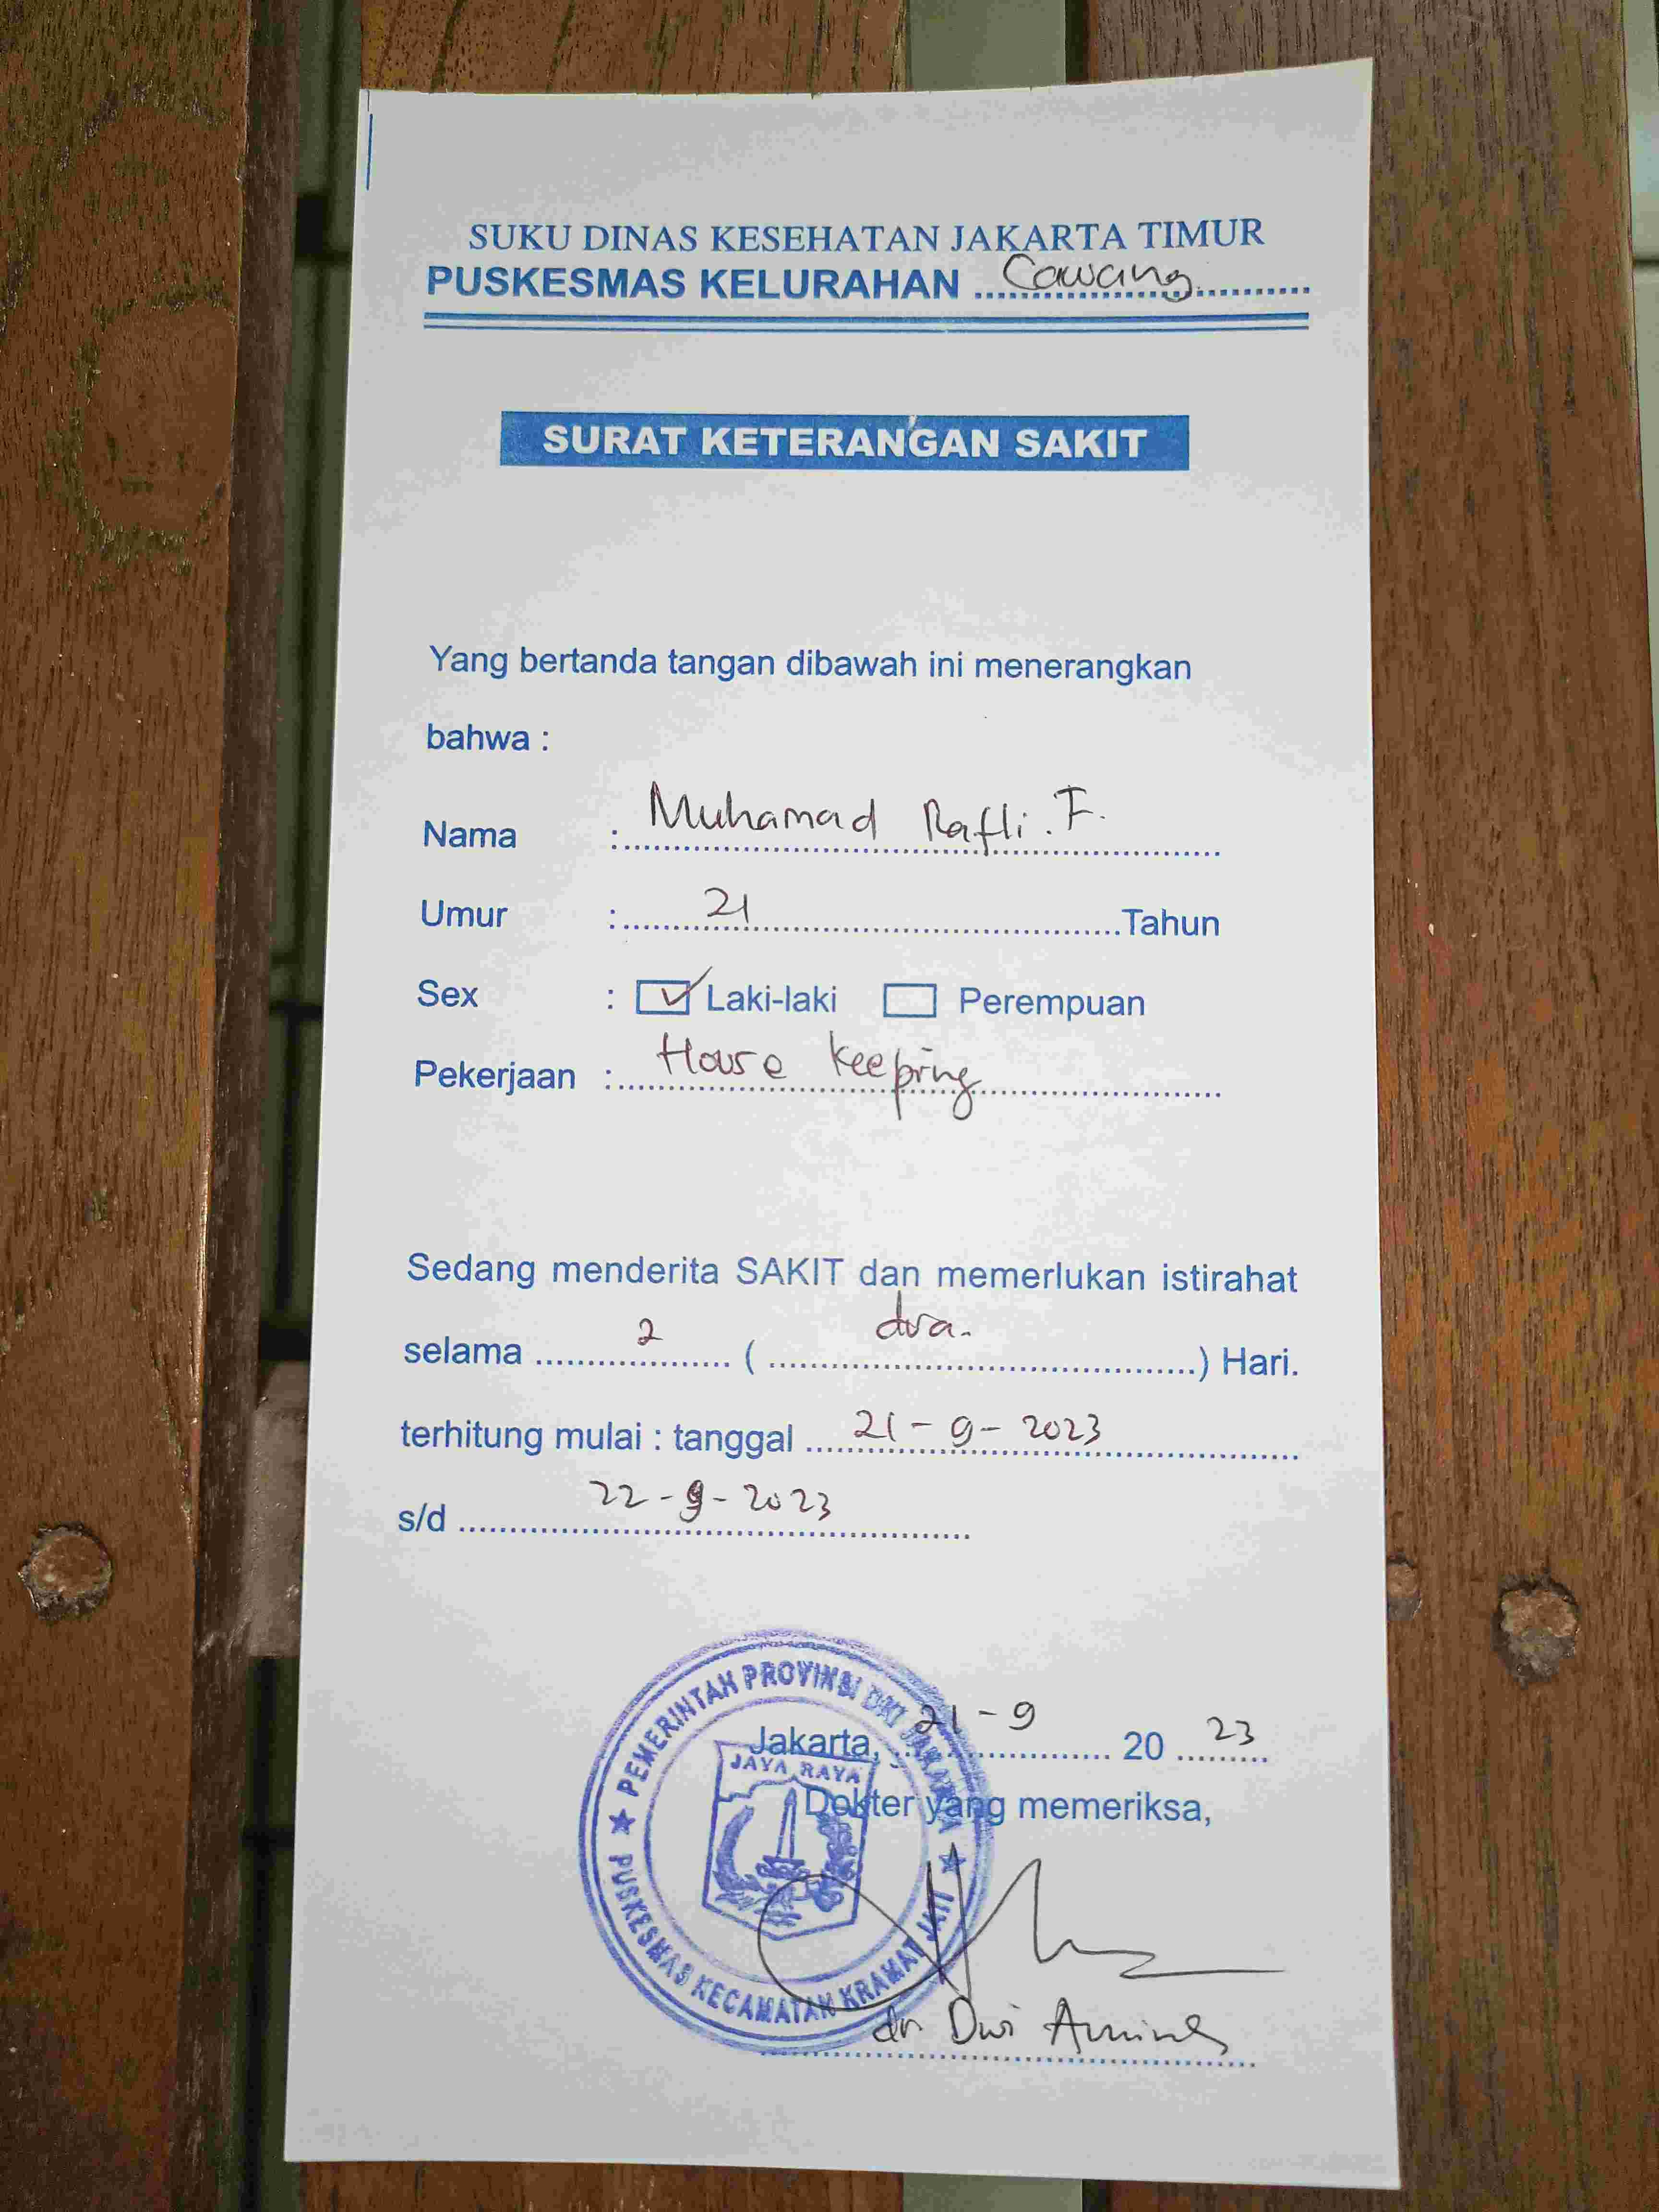 SUKU DINAS KESEHATAN JAKARTA TIMUR
PUSKESMAS KELURAHAN Cawang
SURAT KETERANGAN SAKIT
Yang bertanda tangan dibawah ini menerangkan
bahwa :
Nama : Muhamad Rafli. F.
Umur : 21 Tahun
Sex : Laki-laki Perempuan
Pekerjaan : House Keeping
Sedang menderita SAKIT dan memerlukan istirahat
selama 2 ( dua. ) Hari.
terhitung mulai : tanggal 21-9-2023
s/d 22-9-2023
PEMERINTAH PROVINSI DKI JAKARTA
JAYA RAYA
PUSKESMAS KECAMATAN KRAMAT JATI
Jakarta, 21-9 20 23
Dokter yang memeriksa,
dr Dwi